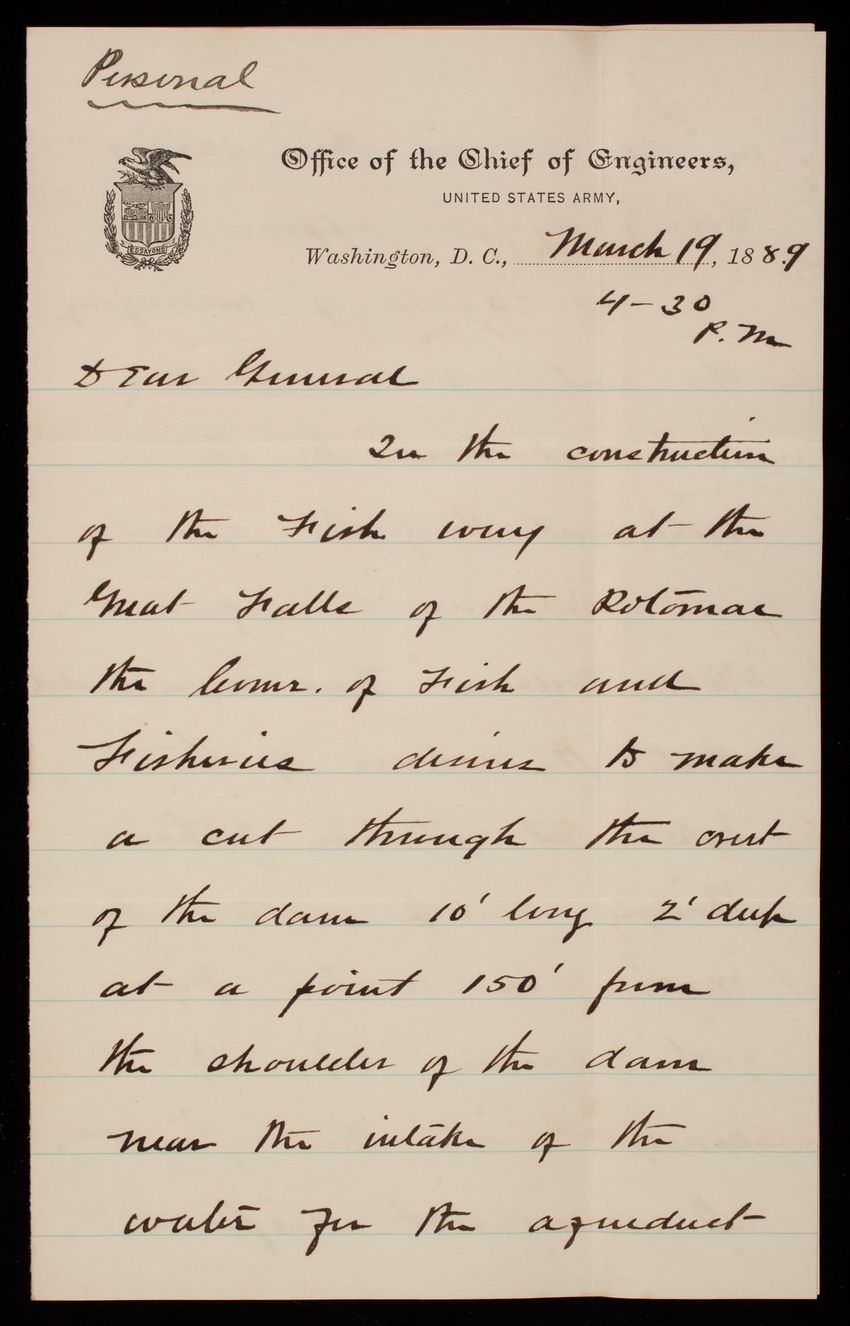 Personal
Office of the Chief of Engineers,
UNITED STATES ARMY,
Washington, D. C., March 19, 1889
4-30
P.M
ESSAYONS
Dear General
In the construction
of the Fish way at the
Great Falls of the Potomac
the Comr. of Fish and
Fisheries desires to make
a cut through the crest
of the dam 10' long 2' deep
at a point 150' from
the shoulder of the dam
near the intake of the
water for the aqueduct